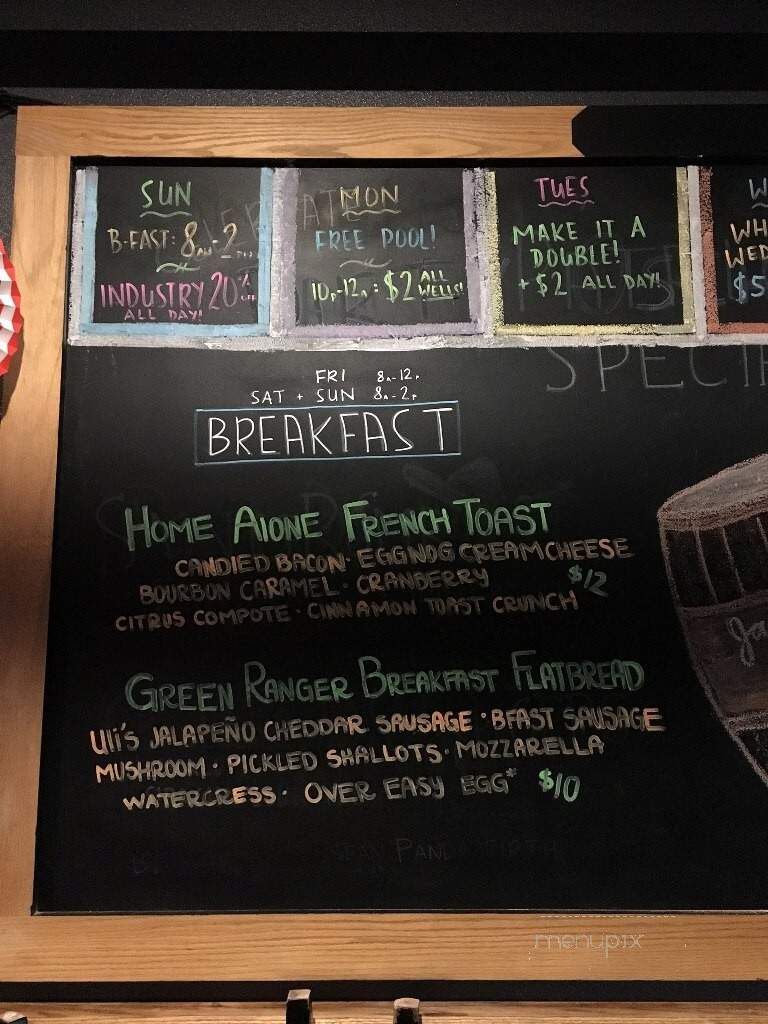 SUN
B-FAST: 8AM-2PM
INDUSTRY 20% OFF
ALL DAY!
MON
FREE POOL!
10P-12A: $2 ALL WELLS!
TUES
MAKE IT A
DOUBLE!
+$2 ALL DAY!
W
WH
WED
$5
SPECI
FRI 8A-12P
SAT + SUN 8A-2P
BREAKFAST
HOME AlONE FRENCH TOAST
CANDIED BACON· EGGNOG CREAM CHEESE
BOURBON CARAMEL· CRANBERRY $12
CITRUS COMPOTE· CINNAMON TOAST CRUNCH
GREEN RANGER BREAKFAST FLATBREAD
Uli'S JALAPEÑO CHEDDAR SAUSAGE · BFAST SAUSAGE
MUSHROOM · PICKLED SHALLOTS· MOZZARELLA
WATERCRESS· OVER EASY EGG* $10
Ja
menupix